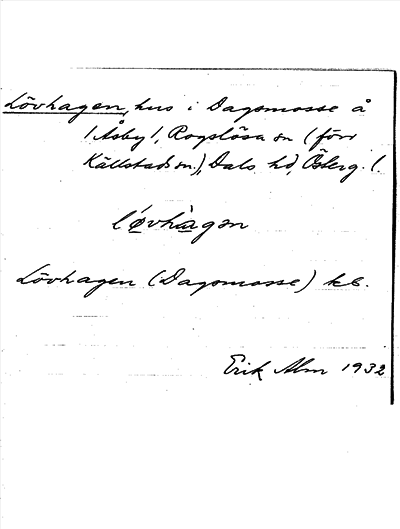 Lövhagen, hus i Dagsmosse å
/Åsby/, Rogslösa sn (förr
Källstads sn), Dals hd, Österg. l.
løvhagən
Lövhagen (Dagsmosse) kb.
Erik Alm 1932